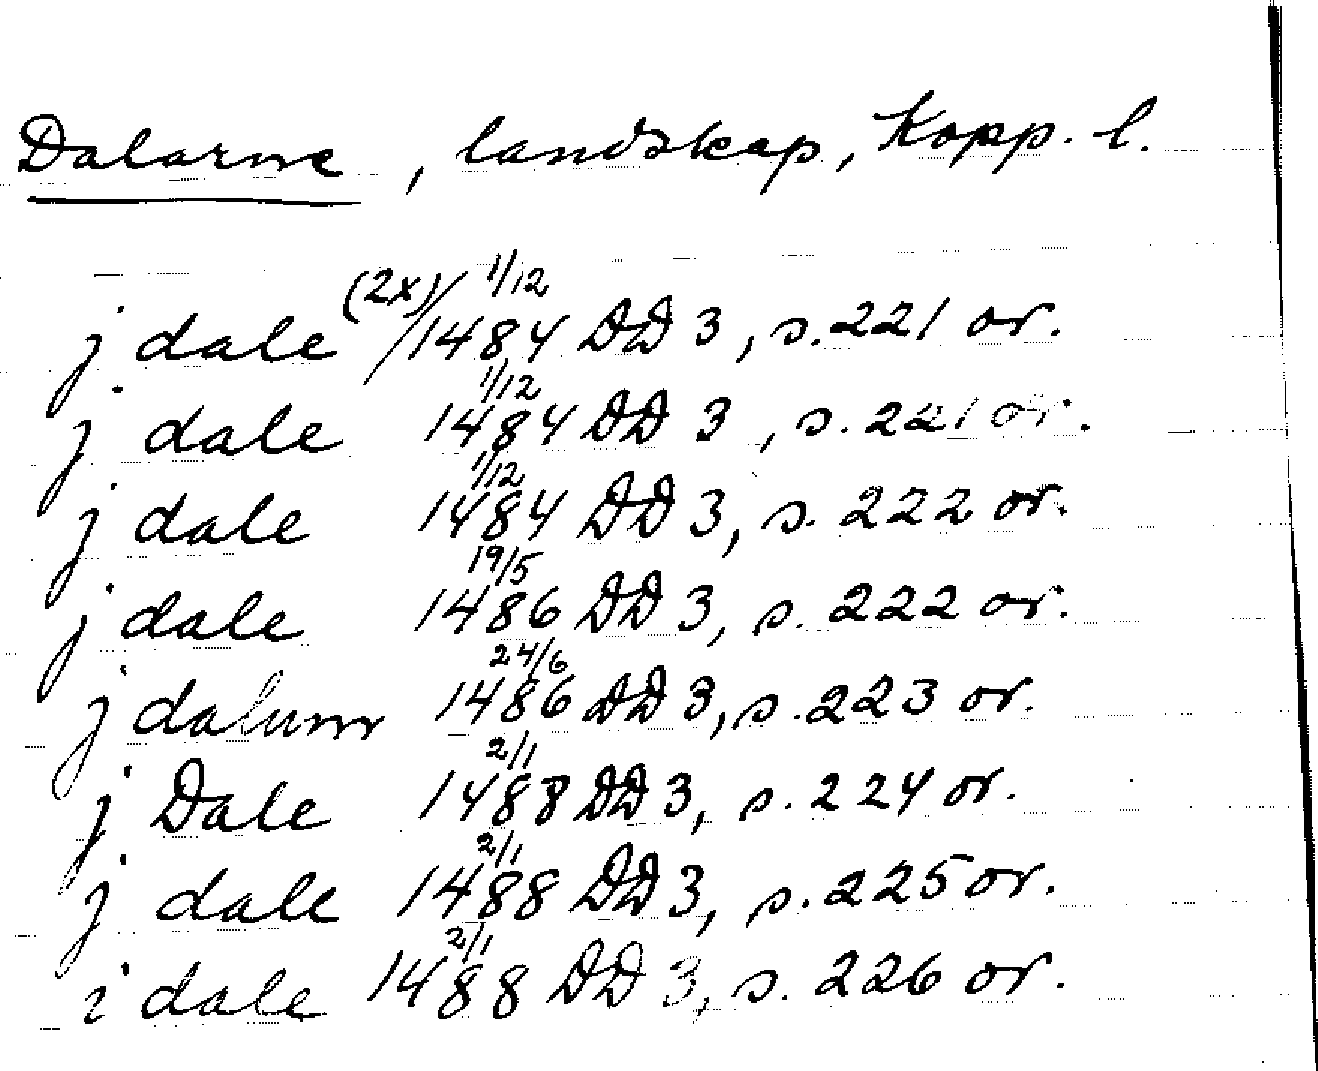 Dalarne, landskap, Kopp. l.
j dale (2x)/ 1/12 1484 DD 3, s. 221 or.
j dale 1/12 1484 DD 3, s. 221 or.
j dale 1/12 1484 DD 3, s. 222 or.
j dale 19/5 1486 DD 3, s. 222 or.
j dalum 24/6 1486 DD 3, s. 223 or.
j Dale 2/1 1488 DD 3, s. 224 or.
j dale 2/1 1488 DD 3, s. 225 or.
i dale 2/1 1488 DD 3, s. 226 or.